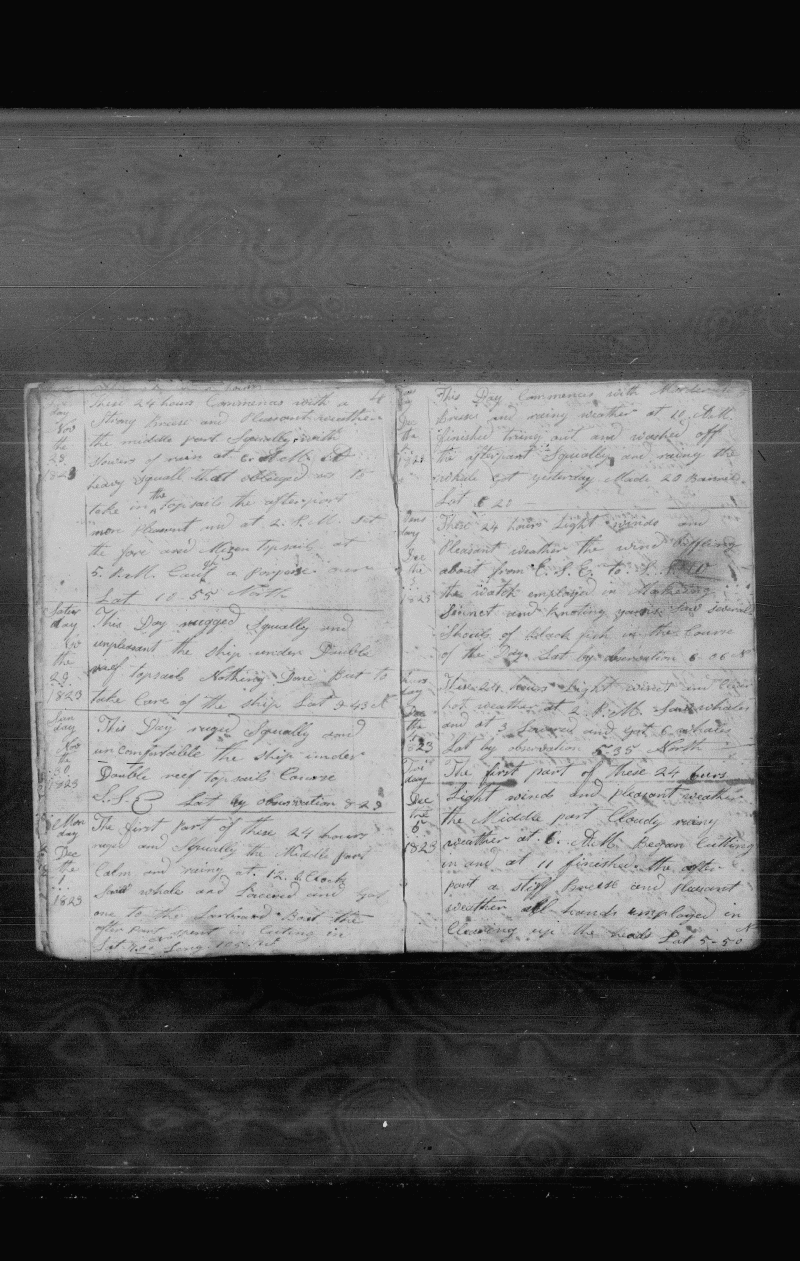 These 24 hours Commences with a
Strong Breese and Pleasant weather
the middle part Squally with
showers of rain at 6 A.M. A
heavy squall that obliged us to
take in the topsails the after part
more Pleasant and at 2 P.M. set
the fore and Mizen topsails at
5. P.M. Caut a porpoise
Lat 10 55 North
Satur
day
Nov
the
29
1823
This Day rugged Squally and
unpleasant the ship under Double
reef topsails Nothing Done But to
take Care of the ship Lat 9-43 N
Sun
day
Nov
the
30
1823
This Day ruged Squally and
uncomfortable the ship under
Double reef topsails Course
S.S.E Lat by observation 8 23
Mon
day
Dec
the
1
1823
The first part of these 24 hours
ruged and Squally the Middle part
Calm and rainy at 12 oClock
Saw whale and Lowered and got
one to the Larboard Boat the
after part spent in Cuting in
Lat
This Day Commences with Moderate
breese and rainy weather at 10 A.M.
finished trying out and washed off
the after part Squally and rainy the
whale cot yesterday Made 20 Barrels
Lat 6 20
day
Dec
the
3
1823
These 24 hours Light winds and
Pleasant weather the wind Baffling
about from E. S. E. to
the watch employed in Makeing
Sinnet and knoting yarns Saw several
Shoals of black fish in the Course
of the Day Lat by observation 6-06 N
day
Dec
the
4
1823
These 24 hours Light winds and Clear
hot weather at 2 P.M. Saw whales
and at 3 Lowered and got 6 whales
Lat by observation 5-35 North
day
Dec
the
5
1823
The first part of these 24 hours
Light winds and pleasant weather
the Middle part Cloudy rainy
weather at 6. A.M. Began Cutting
in and at 11 finished the after
part a stiff Breese and pleasant
weather all hands employed in
Clearing up the heads Lat 5-50 N